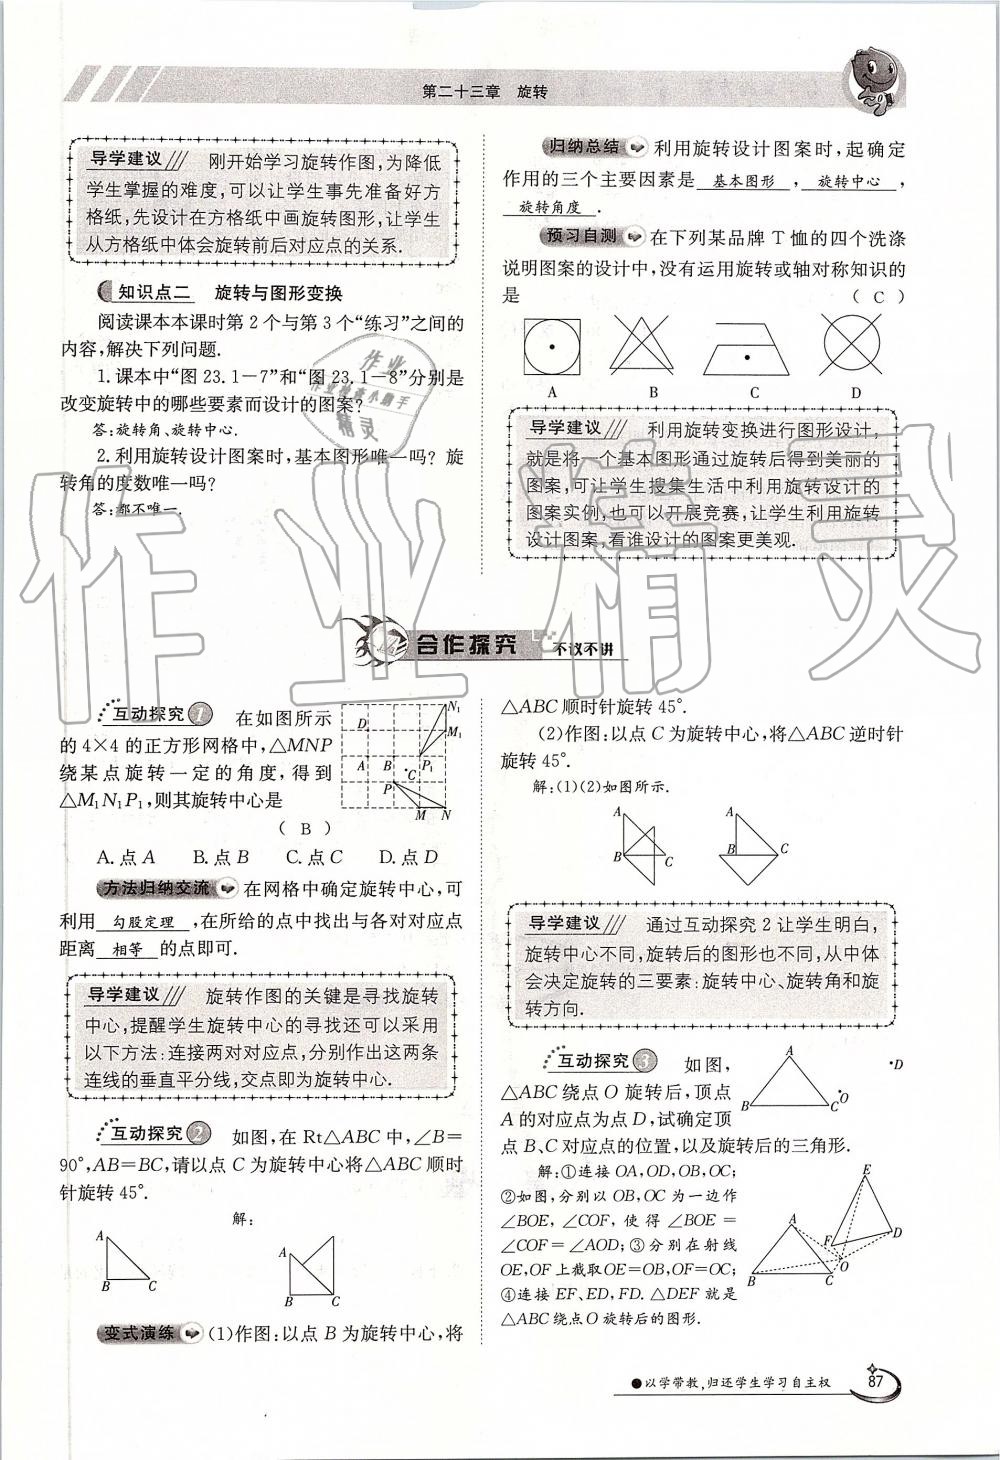 第二十三章 旋转
导学建议 刚开始学习旋转作图,为降低
学生掌握的难度,可以让学生事先准备好方
格纸,先设计在方格纸中画旋转图形,让学生
从方格纸中体会旋转前后对应点的关系.
知识点二 旋转与图形变换
阅读课本本课时第2个与第3个“练习”之间的
内容,解决下列问题.
1.课本中“图23.1-7”和“图23.1-8”分别是
改变旋转中的哪些要素而设计的图案?
答:旋转角、旋转中心.
2.利用旋转设计图案时,基本图形唯一吗? 旋
转角的度数唯一吗?
答:都不唯一.
归纳总结 利用旋转设计图案时,起确定
作用的三个主要因素是 基本图形 , 旋转中心 ,
旋转角度 .
预习自测 在下列某品牌T恤的四个洗涤
说明图案的设计中,没有运用旋转或轴对称知识的
是 ( C )
A B C D
导学建议 利用旋转变换进行图形设计,
就是将一个基本图形通过旋转后得到美丽的
图案,可让学生搜集生活中利用旋转设计的
图案实例,也可以开展竞赛,让学生利用旋转
设计图案,看谁设计的图案更美观.
作业精灵
合作探究 不议不讲
互动探究1 在如图所示
的4×4的正方形网格中,△MNP
绕某点旋转一定的角度,得到
△M₁N₁P₁,则其旋转中心是
( B )
D N₁ M₁ A B C P₁ P M N
A.点A B.点B C.点C D.点D
方法归纳交流 在网格中确定旋转中心,可
利用 勾股定理 ,在所给的点中找出与各对对应点
距离 相等 的点即可.
导学建议 旋转作图的关键是寻找旋转
中心,提醒学生旋转中心的寻找还可以采用
以下方法:连接两对对应点,分别作出这两条
连线的垂直平分线,交点即为旋转中心.
互动探究2 如图,在Rt△ABC中,∠B=
90°,AB=BC,请以点C为旋转中心将△ABC顺时
针旋转45°.
解:
A B C A B C
变式演练 (1)作图:以点B为旋转中心,将
△ABC顺时针旋转45°.
(2)作图:以点C为旋转中心,将△ABC逆时针
旋转45°.
解:(1)(2)如图所示.
A B C A B C
导学建议 通过互动探究2让学生明白,
旋转中心不同,旋转后的图形也不同,从中体
会决定旋转的三要素:旋转中心、旋转角和旋
转方向.
互动探究3 如图,
△ABC绕点O旋转后,顶点
A的对应点为点D,试确定顶
点B、C对应点的位置,以及旋转后的三角形.
A B C O D
解:①连接OA,OD,OB,OC;
②如图,分别以OB,OC为一边作
∠BOE,∠COF,使得∠BOE=
∠COF=∠AOD;③分别在射线
OE,OF上截取OE=OB,OF=OC;
④连接EF,ED,FD.△DEF就是
△ABC绕点O旋转后的图形.
E A F D B C O
●以学带教,归还学生学习自主权
87